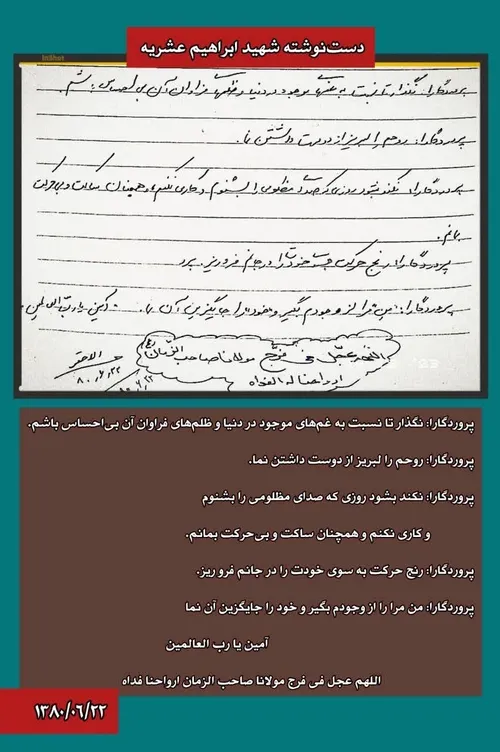 دست‌نوشته شهید ابراهیم عشریه
InShot
پروردگارا: نگذار تا نسبت به غمهای موجود در دنیا و ظلمهای فراوان آن بی احساس باشم.
پروردگارا: روحم را لبریز از دوست داشتن نما.
پروردگارا: نکند بشود روزی که صدای مظلومی را بشنوم و کاری نکنم و همچنان ساکت و بی حرکت
بمانم.
پروردگارا: رنج حرکت به سوی خودت را در جانم فرو ریز.
پروردگارا: من مرا از وجودم بگیر و خود را جایگزین آن نما. آمین یا رب العالمین
اللهم عجل فی فرج مولانا صاحب الزمان
ارواحنا له الفداه
الاحقر
۸۰,۶,۲۲
پروردگارا: نگذار تا نسبت به غم‌های موجود در دنیا و ظلم‌های فراوان آن بی‌احساس باشم.
پروردگارا: روحم را لبریز از دوست داشتن نما.
پروردگارا: نکند بشود روزی که صدای مظلومی را بشنوم
و کاری نکنم و همچنان ساکت و بی‌حرکت بمانم.
پروردگارا: رنج حرکت به سوی خودت را در جانم فرو ریز.
پروردگارا: من مرا را از وجودم بگیر و خود را جایگزین آن نما
آمین یا رب العالمین
اللهم عجل فی فرج مولانا صاحب الزمان ارواحنا فداه
۱۳۸۰/۰۶/۲۲